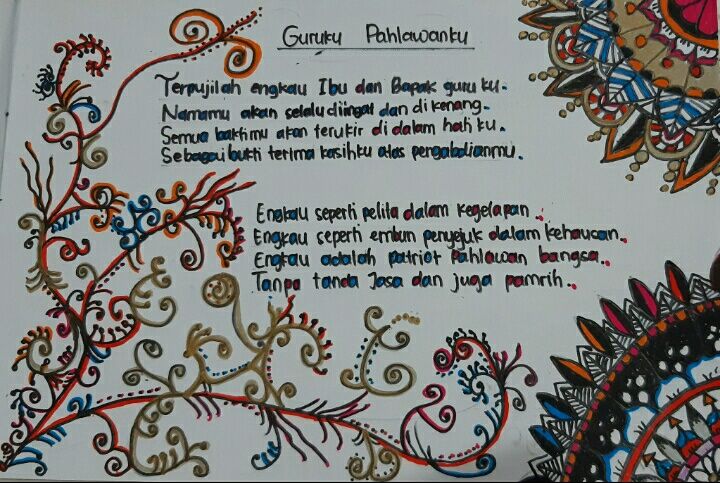 Guruku Pahlawanku
Terpujilah engkau Ibu dan Bapak guru ku.
Namamu akan selalu diingat dan di kenang.
Semua baktimu akan terukir di dalam hati ku.
Sebagai bukti terima kasihku atas pengabdianmu.
Engkau seperti pelita dalam kegelapan..
Engkau seperti embun penyejuk dalam kehausan..
Engkau adalah patriot pahlawan bangsa..
Tanpa tanda Jasa dan juga pamrih..